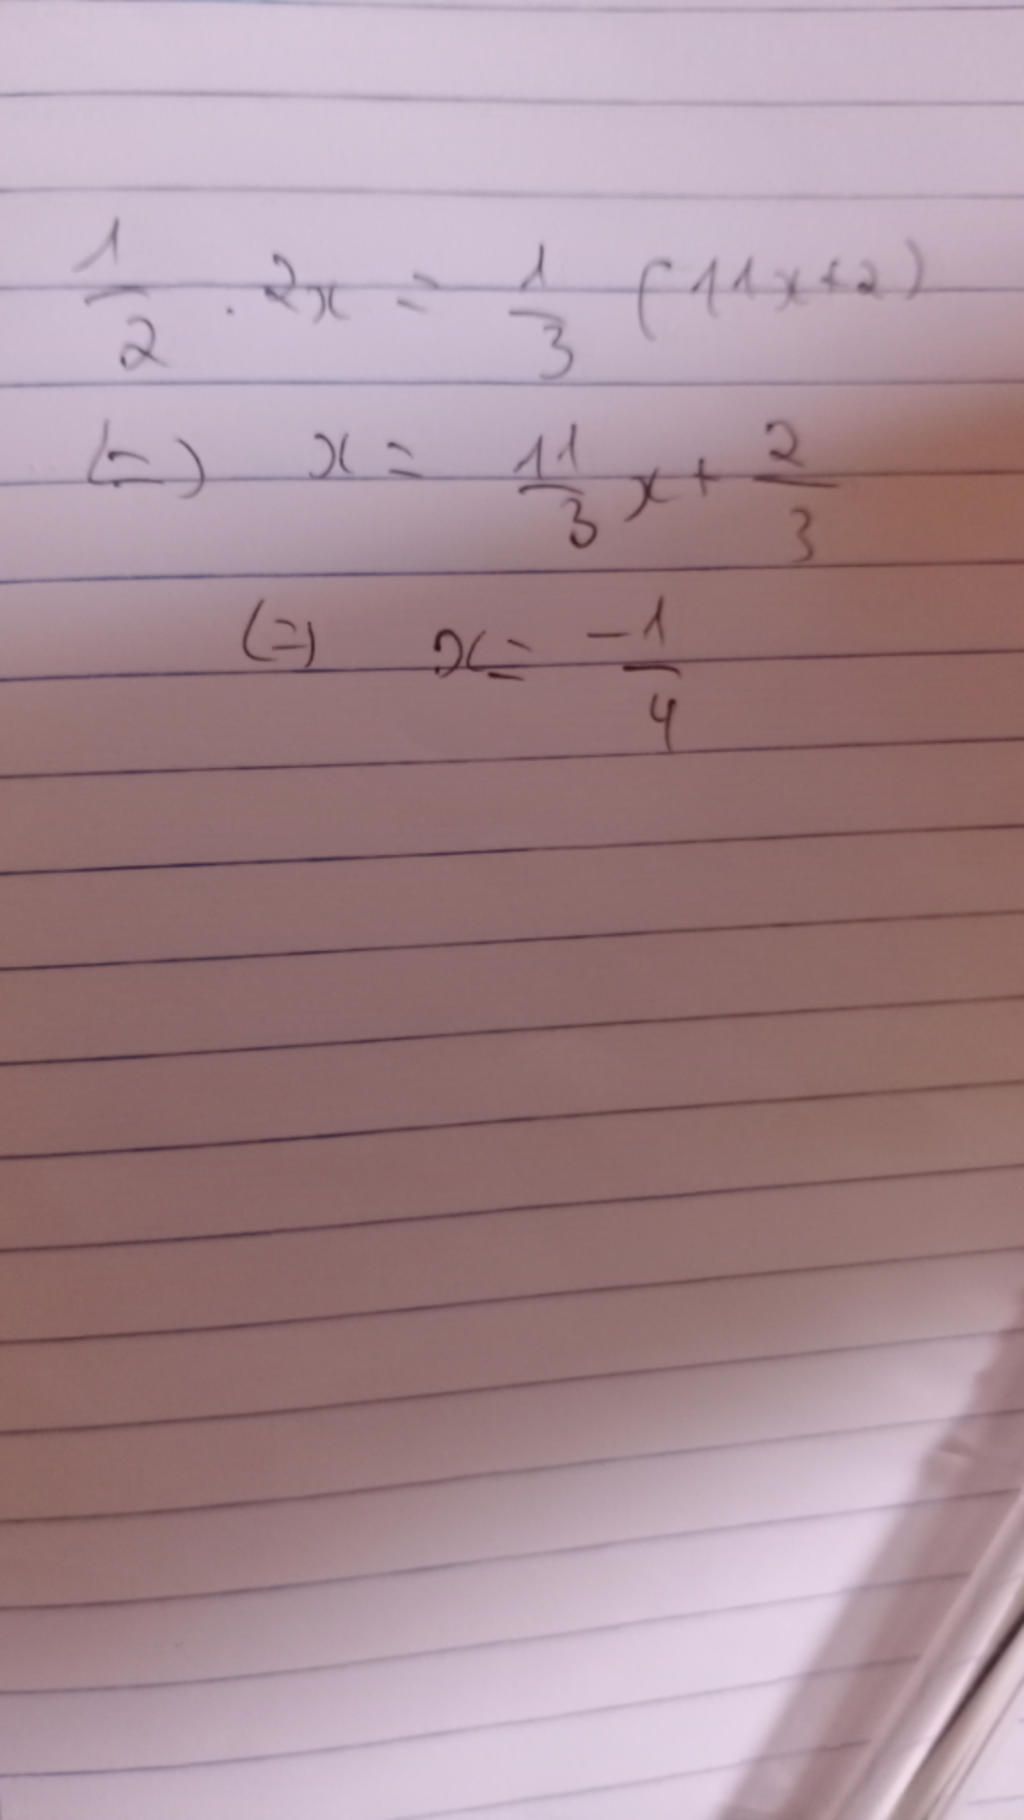 1/2 . 2x = 1/3 (11x+2)
(=) x = 11/3 x + 2/3
(=) x = -1/4